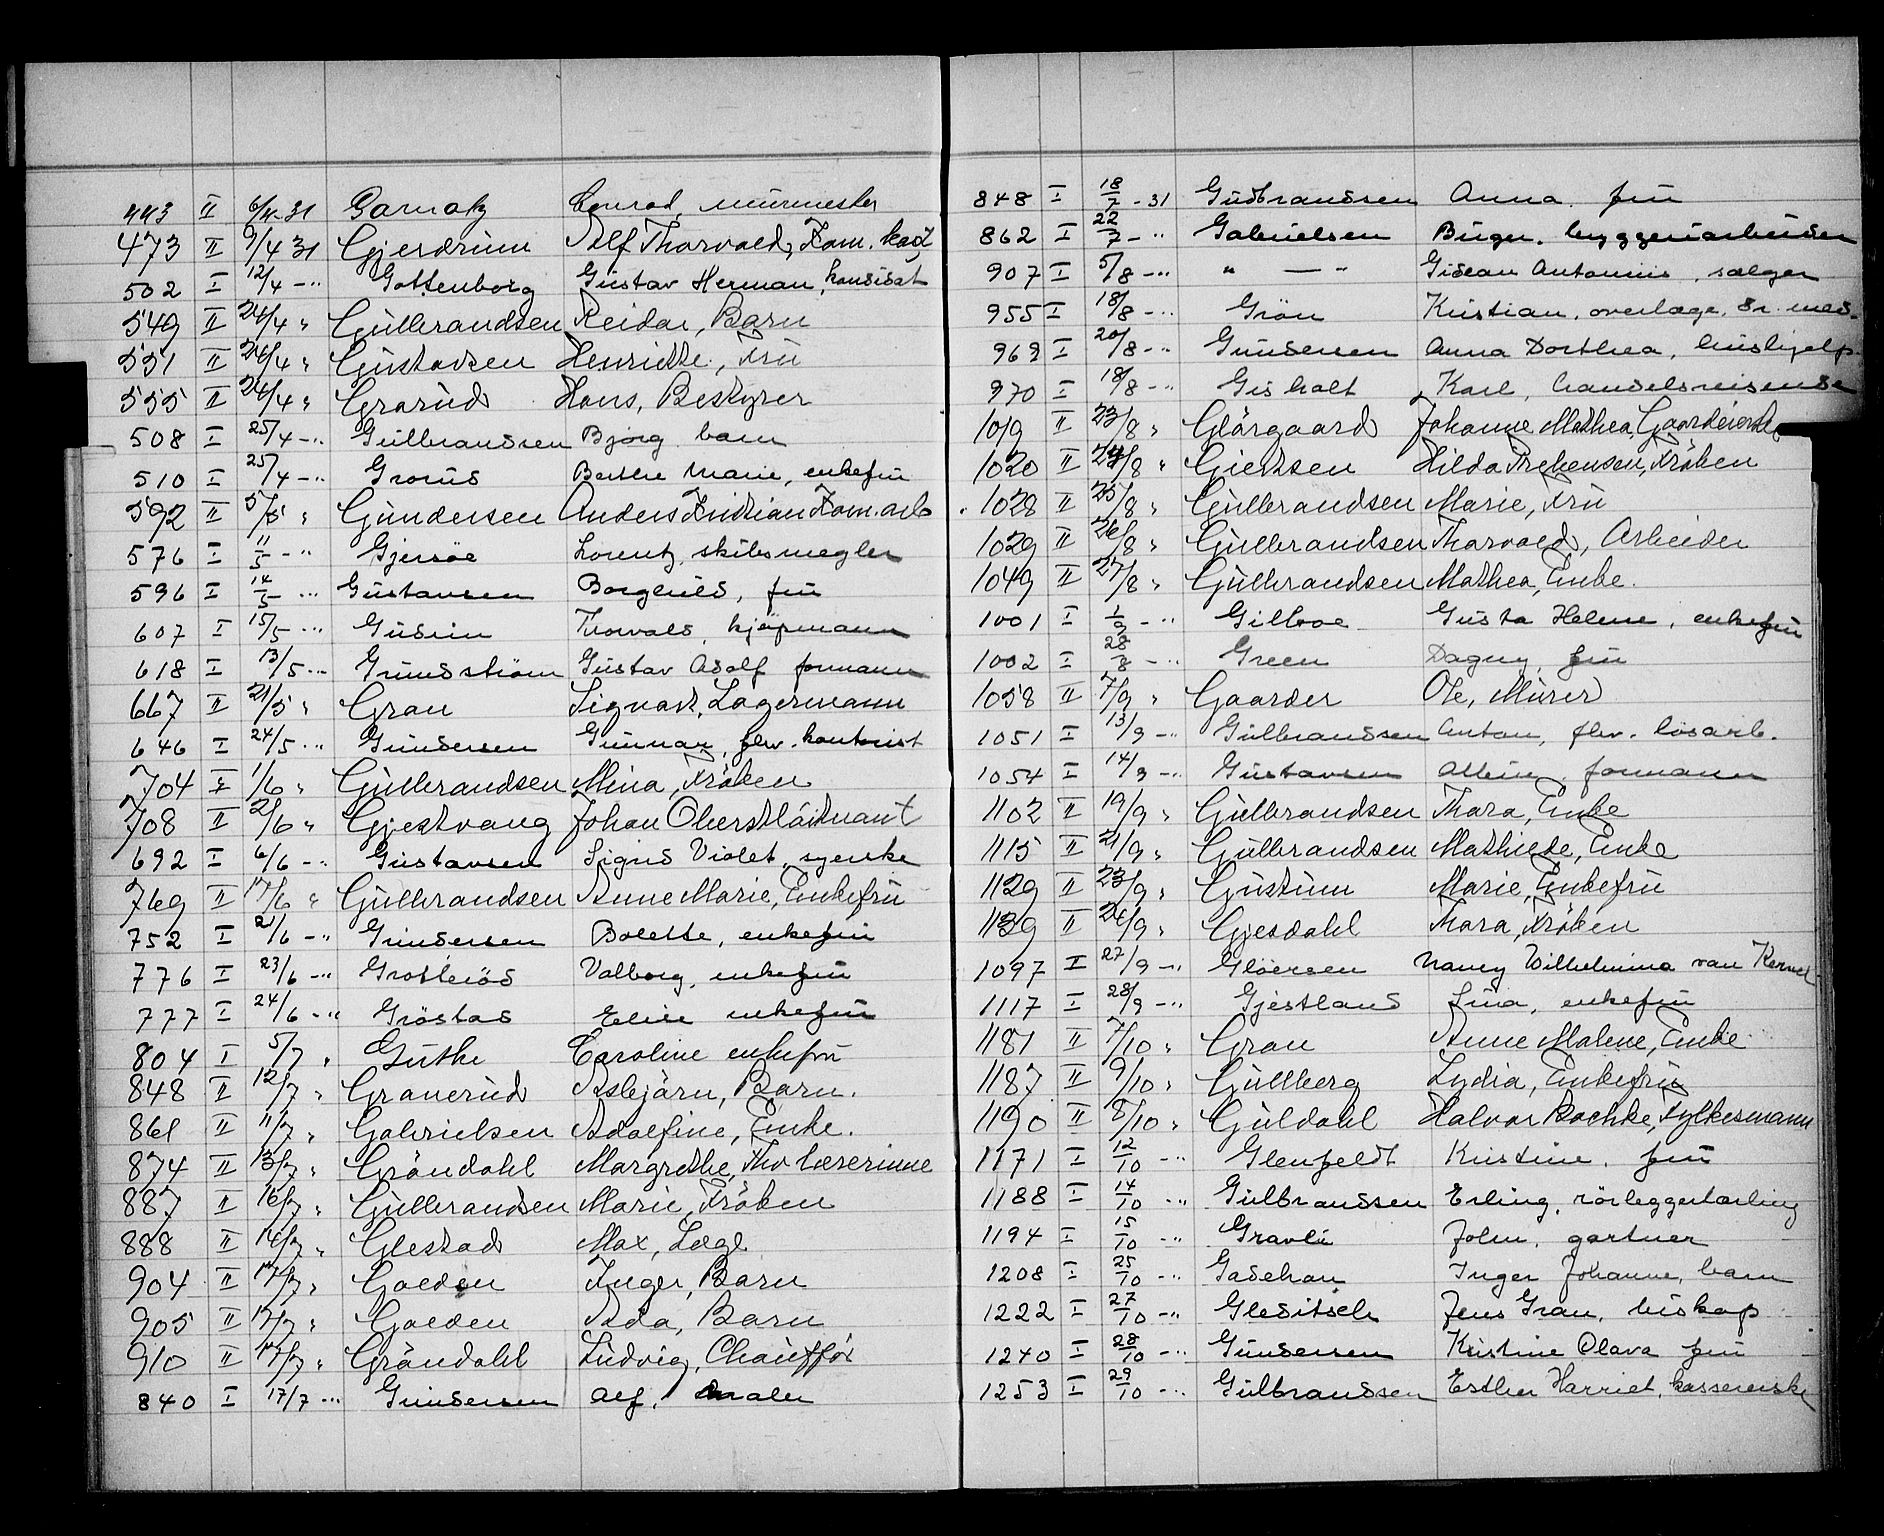 443 II 6/4-31 Garnatz Conrad, murmester
473 II 9/4 31 Gjerdrum Alf Thorvald, Kom. kas.
502 I 12/4 -"- Gottenborg Gustav Herman, kandidat
549 II 24/4 " Gulbrandsen Reidar, Barn
551 II 24/4 " Gustavsen Henriette, Fru
555 II 24/4 " Grarud Hans, Bestyrer
508 I 25/4 -"- Gulbrandsen Bjørg, barn
510 I 25/4 -"- Grorud Berthe Marie, enkefru
592 II 5/5 " Gundersen Anders Kristian Kom. arb
576 I 11/5 -"- Gjersøe Lorentz, skibsmegler
596 I 14/5 -"- Gustavsen Borghild, fru
607 I 15/5 -"- Gudim Thorvald, kjøpmann
618 I 13/5 -"- Grundström Gustav Adolf formann
667 II 21/5 " Gran Signart, Lagermann
646 I 24/5 -"- Gundersen Gunnar, fhv. kontorist
704 II 1/6 " Gulbrandsen Mina, Frøken
708 II 2/6 " Gjestvang Johan Oberstløitnant
692 I 6/6 -"- Gustavsen Sigrid Violet, syerske
769 II 17/6 " Gulbrandsen Anne Marie, Enkefru
752 I 21/6 -"- Gundersen Bolette, enkefru
776 I 23/6 -"- Grotteiøs Valborg, enkefru
777 I 24/6 -"- Grøstad Elise enkefru
804 I 5/7 " Guthe Caroline enkefru
848 II 12/7 " Granerud Asbjørn, Barn.
861 II 11/7 " Gabrielsen Adolfine, Enke.
874 II 13/7 " Grøndahl Margrethe, Fhv lærerinne
887 II 16/7 " Gulbrandsen Marie, Frøken
888 II 14/7 " Glestad Max, Læge
904 II 17/7 " Golden Inger, Barn
905 II 17/7 " Golden Ada, Barn
910 II 17/7 " Grøndahl Ludvig, Chauffør
840 I 17/7 -"- Gundersen Alf, maler
848 I 18/7 -31 Gudbrandsen Anna, fru
862 I 22/7 -"- Gabrielsen Birger, byggeriarbeider
907 I 5/8 -"- " — " Gidean Antonius, sælger
955 I 18/8 -"- Grøn Kristian, overlæge, Dr. med.
969 I 20/8 -"- Gundersen Anna Dorthea, hushjelp.
970 I 18/8 -"- Gisholt Karl, handelsreisende
1019 II 23/8 " Glørgaard Johanne Mathea,
1020 II 24/8 " Giertsen Hilda Frøken
1028 II 25/8 " Gulbrandsen Marie, Fru
1029 II 26/8 " Gulbrandsen Thorvald, Arbeider
1049 II 27/8 " Gulbrandsen Mathea, Enke.
1001 I 1/9 -"- Gilboe Gusta Helene, enkefru
1002 I 28/8 -"- Green Dagny, fru
1058 II 7/9 " Gaarder Ole, Murer
1051 I 13/9 -"- Gulbrandsen Anton, fhv. løsarb.
1054 I 14/9 -"- Gustavsen formann
1102 II 19/9 " Gulbrandsen Thora, Enke
1115 II 21/9 " Gulbrandsen Mathilde, Enke
1129 II 23/9 " Gustum Marie, Enkefru
1139 II 24/9 " Gjesdahl Thora, Frøken
1097 I 27/9 -"- Gløersen Nancy Wilhelmina van
1117 I 28/9 -"- Gjestland Lina, enkefru
1181 II 7/10 " Gran Anne Malene, Enke
1187 II 9/10 " Gullberg Lydia, Enkefru
1190 II 8/10 " Guldahl Halvor Bachke, Fylkesmann
1171 I 12/10 -"- Glenfeldt Kristine, fru
1188 I 14/10 -"- Gulbrandsen Erling, rørleggerlærling
1194 I 15/10 -"- Gravli John, gartner
1208 I 25/10 -"- Gadehan Inger Johanne, barn
1222 I 27/10 -"- Gleditsch Jens Gran, biskop
1240 I 28/10 -"- Gundersen Kristine Olava fru
1253 I 29/10 -"- Gulbrandsen Esther Harriet, kassererske